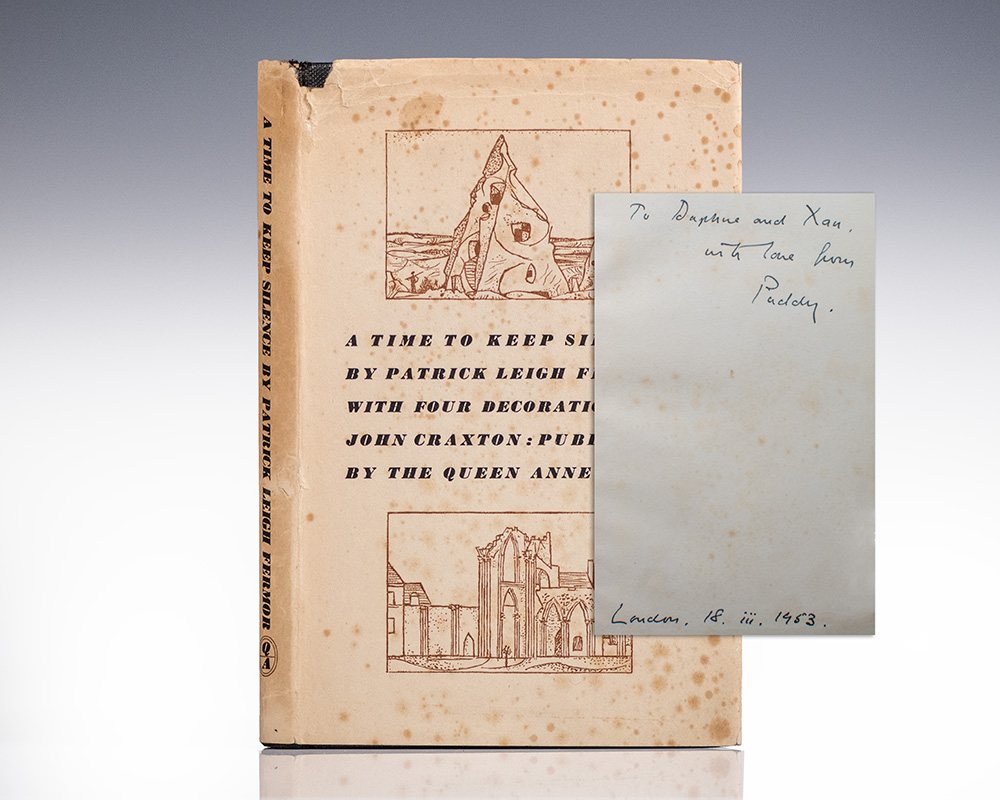 A TIME TO KEEP SILENCE BY PATRICK LEIGH FERMOR
Q A
A TIME TO KEEP SI
BY PATRICK LEIGH F
WITH FOUR DECORATIO
JOHN CRAXTON: PUB
BY THE QUEEN ANNE
To Daphne and Xan.
with love from
Paddy.
London. 18. iii. 1953.